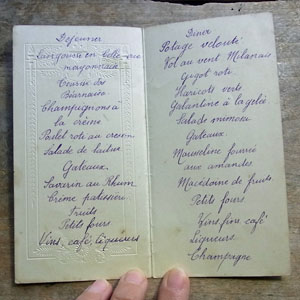 Déjeuner
Langouste en belle-vue
mayonnaise
Béarnaise
Champignons à
la crème
Poulet roti au cresson
Salade de laitue
Gateaux
Savarin au Rhum
Crème patissière
Fruits
Petits fours
Vins, café, liqueurs
Diner
Potage velouté
Vol au vent Milanais
Gigot roti
Haricots verts
Galantine à la gelée
Salade mimosa
Gateaux
Mousseline fourrée
aux amandes
Macédoine de fruits
Petits fours
Vins fins café
Liqueurs
Champagne